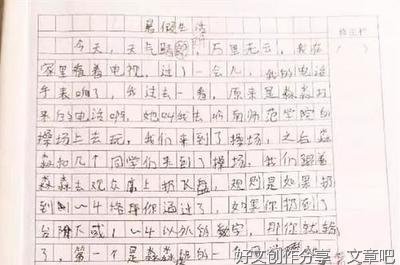 暑假生活
修正栏
今天,天气晴朗,万里无云,我在
家里看着电视,过了一会儿,我的电话
手表响了,我过去一看,原来是淼淼打
来的电话啊。她叫我去师范学院的
操场上去玩,我们来到了操场,之后淼
淼和几个同学们来到了操场。我们跟着
淼淼去观众席上扔飞盘,规则是如果扔
到1~4格那你通过了,如果你扔到了
台阶下或1~4以外的数字,那你就输
了,第一个是淼淼扔的
好文创作分享,文章吧